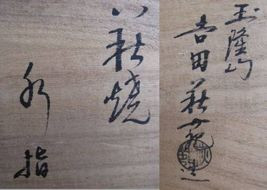 萩焼
水指
玉隆山
吉田萩苑造